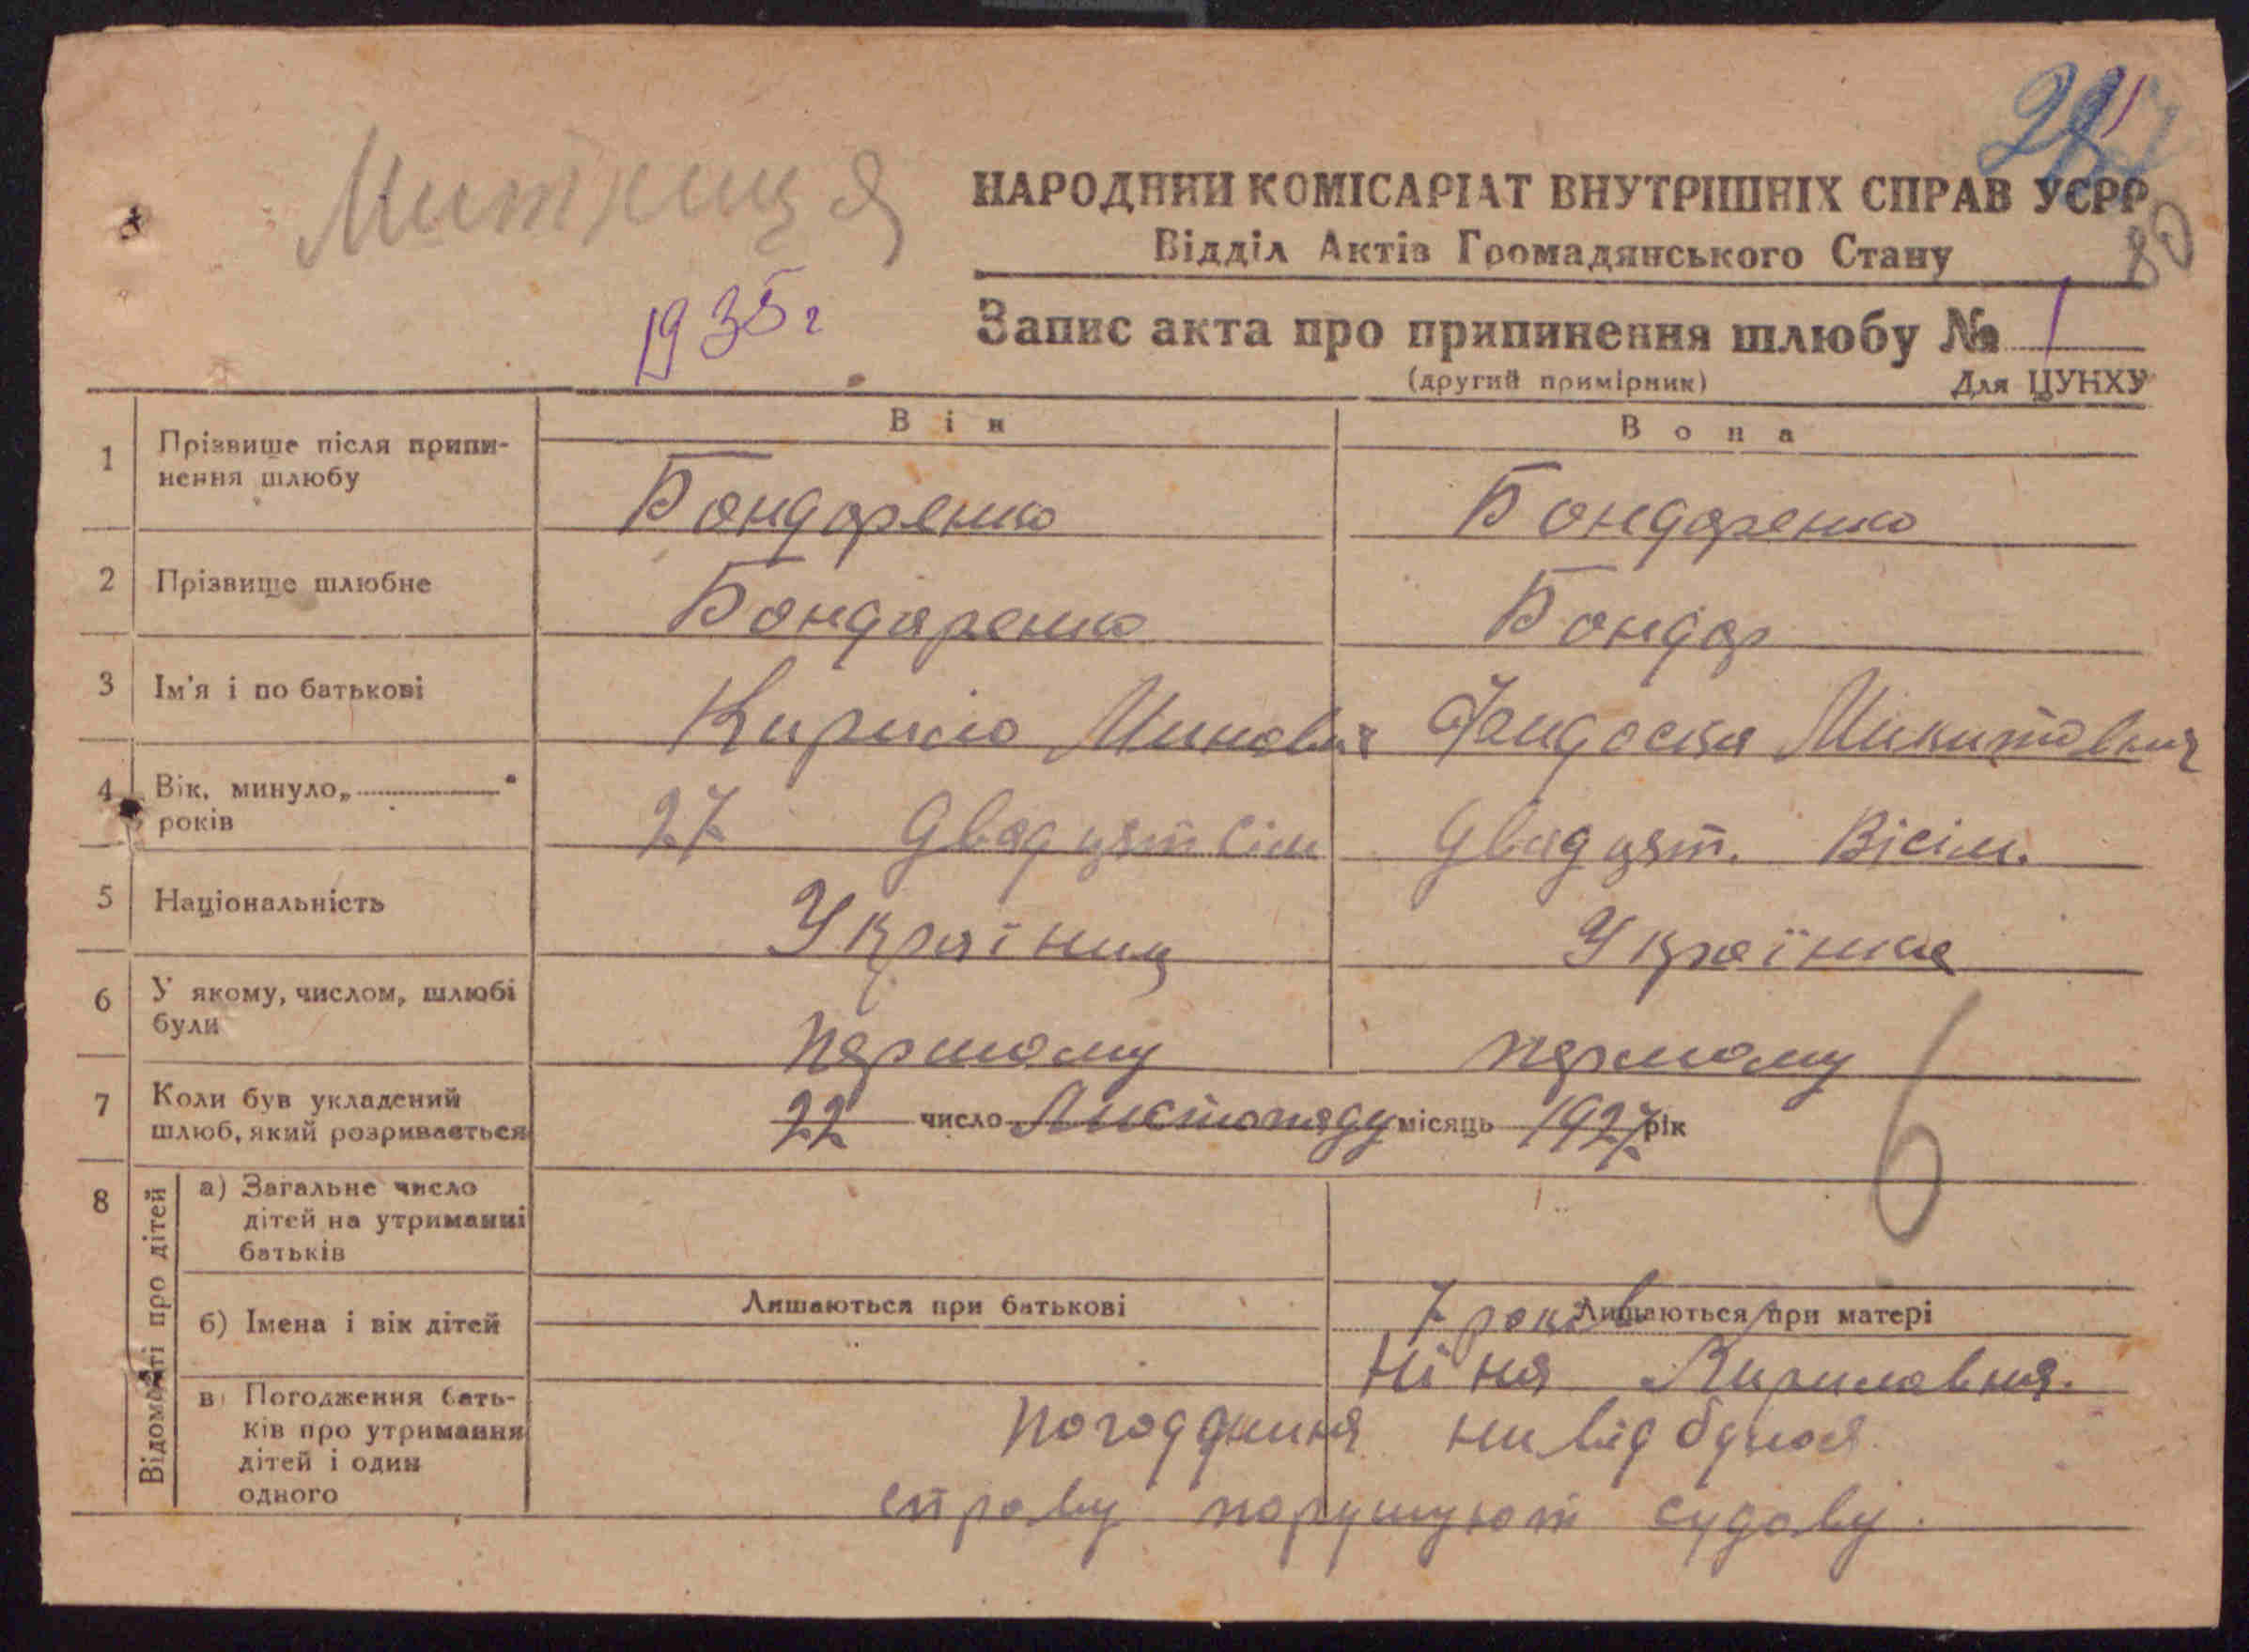 Митниця
НАРОДНИЙ КОМІСАРІАТ ВНУТРІШНІХ СПРАВ УСРР
80
Відділ Актів Громадянського Стану
1935 г
Запис акта про припинення шлюбу № 1
(другий примірник) Для ЦУНХУ
Він Вона
1 Прізвище після припи-
нення шлюбу
Бондаренко Бондаренко
2 Прізвище шлюбне Бондаренко Бондар
3 Ім'я і по батькові Кирило Минович Микитовних
4 Вік, минуло „ "
років
27 Двадцят сім Двадцят. Вісім.
5 Національність Україниц Українка
6 У якому, числом, шлюбі
були
першому першому
7 Коли був укладений
шлюб, який розривається
22 число Листопаду місяць 1927 рік
6
8 Відомості про дітей
а) Загальне число
дітей на утриманні
батьків
б) Імена і вік дітей
Лишаються при батькові 7 років Лишаються при матері
Ніня Кириловня.
в) Погодження бать-
ків про утримання
дітей і один
одного
погодджиня ни відбулося
справу порушуют судову.